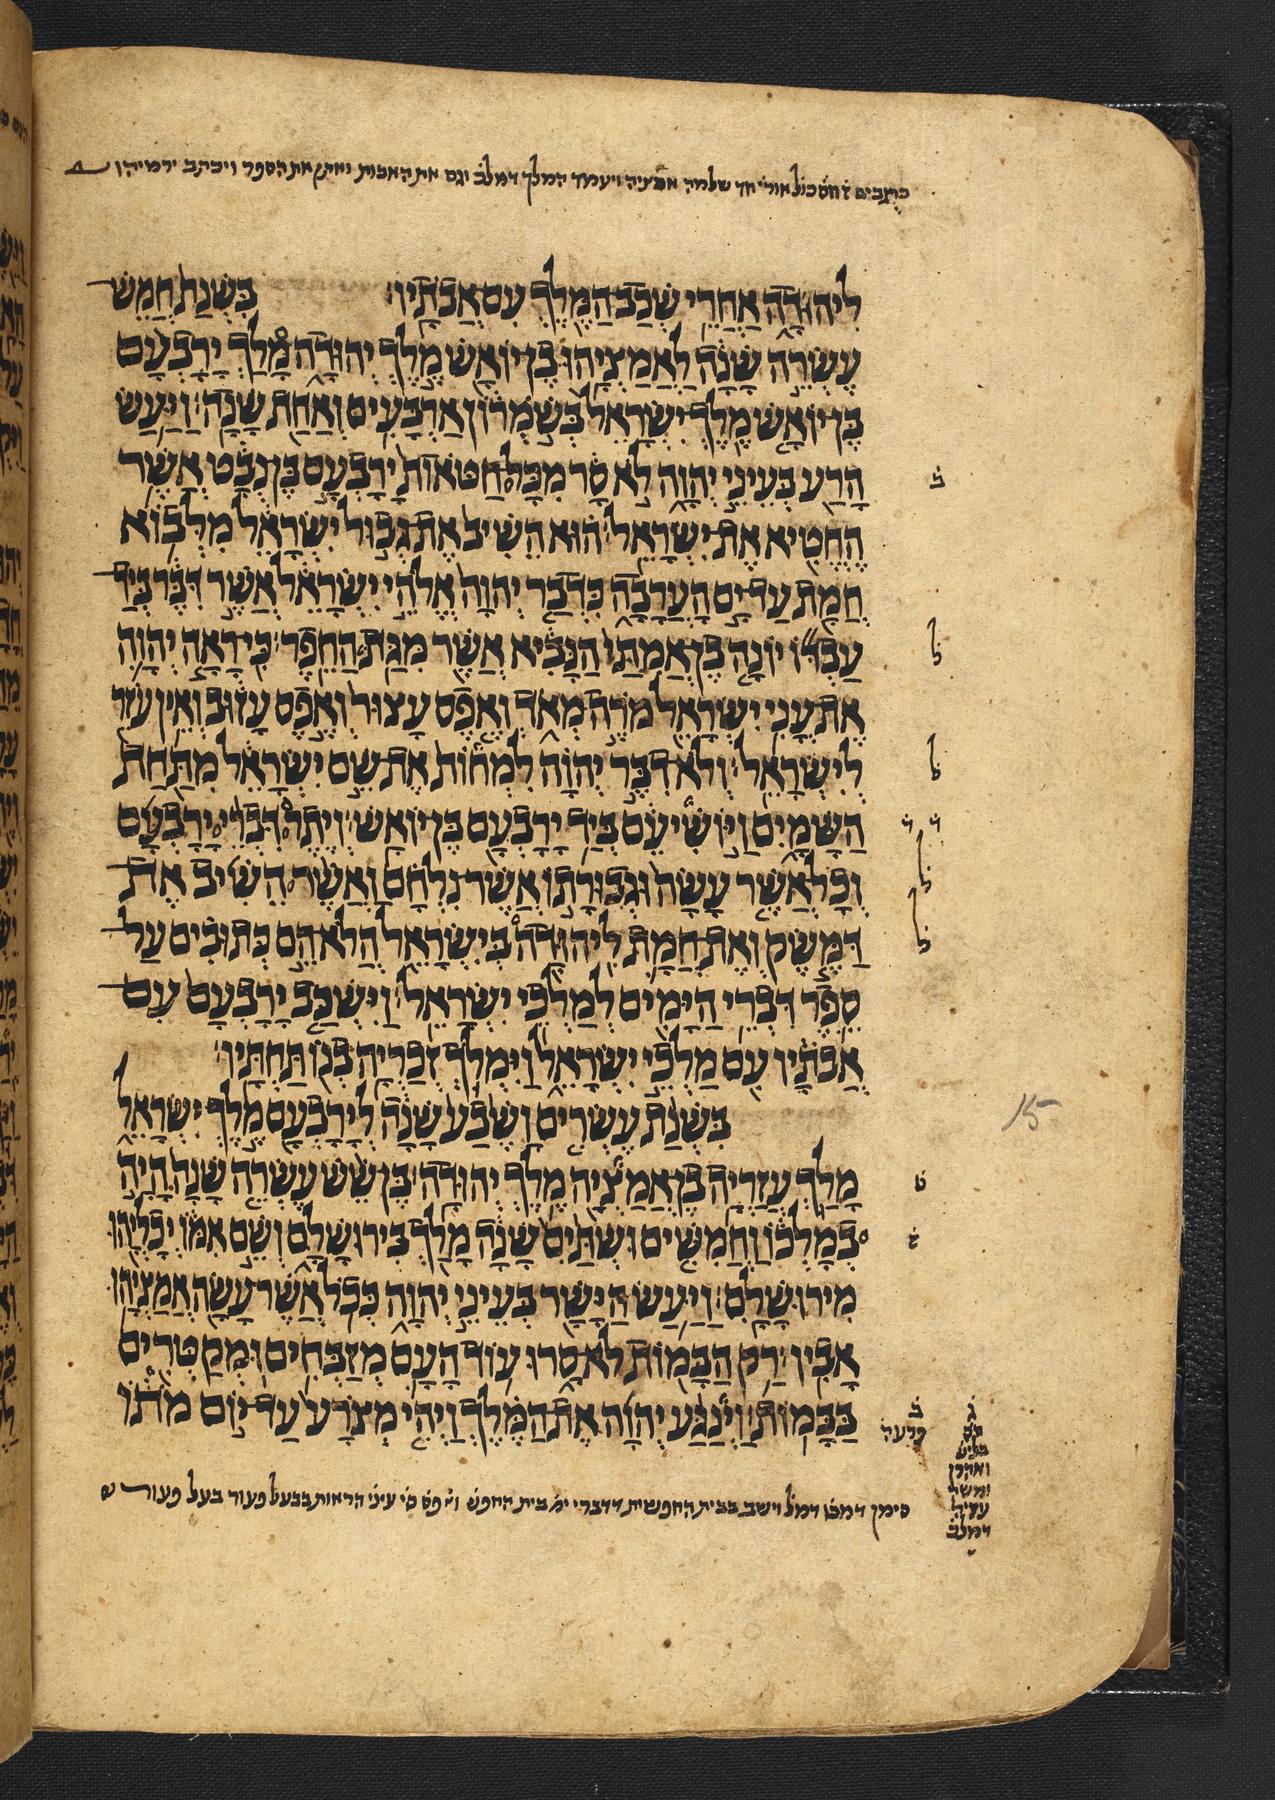 ליהודה אחרי שכב המלך עם אבתיו׃ בשנת חמש
עשרה שנה לאמציהו בן יואש מלך יהודה מלך ירבעם
בן יואש מלך ישראל בשמרון ארבעים ואחת שנה׃ ויעש
הרע בעיני יהוה לא סר מכל חטאות ירבעם בן נבט אשר
החטיא את ישראל׃ הוא השיב את גבול ישראל מלבוא
חמת עד ים הערבה כדבר יהוה אלהי ישראל אשר דבר ביד
עבדו יונה בן אמתי הנביא אשר מגת החפר׃ כי ראה יהוה
את עני ישראל מרה מאד ואפס עצור ואפס עזוב ואין עזר
לישראל׃ ולא דבר יהוה למחות את שם ישראל מתחת
השמים ויושיעם ביד ירבעם בן יואש׃ ויתר דברי ירבעם
וכל אשר עשה וגבורתו אשר נלחם ואשר השיב את
דמשק ואת חמת ליהודה בישראל הלא הם כתובים על
ספר דברי הימים למלכי ישראל׃ וישכב ירבעם עם
אבתיו עם מלכי ישראל וימלך זכריה בנו תחתיו׃
בשנת עשרים ושבע שנה לירבעם מלך ישראל
מלך עזריה בן אמציה מלך יהודה׃ בן שש עשרה שנה היה
במלכו וחמשים ושתים שנה מלך בירושלם ושם אמו יכליהו
מירושלם׃ ויעש הישר בעיני יהוה ככל אשר עשה אמציהו
אביו׃ רק הבמות לא סרו עוד העם מזבחים ומקטרים
בבמות׃ וינגע יהוה את המלך ויהי מצרע עד יום מתו
15